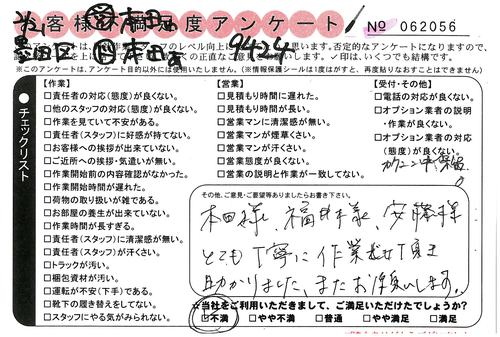 お客様満足度アンケート
No 062056
墨田区
9424
※このアンケートは、アンケート目的以外には使用いたしません。（※情報保護シールは1度はがすと、再度貼りなおすことはできません）
チェックリスト
【作業】
□責任者の対応（態度）が良くない。
□他のスタッフの対応（態度）が良くない。
□作業を見ていて不安がある。
□責任者（スタッフ）に好感が持てない。
□お客様への挨拶が出来ていない。
□ご近所への挨拶・気遣いが無い。
□作業開始前の内容確認がなかった。
□作業開始時間が遅れた。
□荷物の取り扱いが雑である。
□お部屋の養生が出来ていない。
□作業時間が長すぎる。
□責任者（スタッフ）に清潔感が無い。
□責任者（スタッフ）が汗くさい。
□トラックが汚い。
□梱包資材が汚い。
□運転が不安（下手）である。
□靴下の履き替えをしてない。
□スタッフにやる気がみられない。
【営業】
□見積もり時間に遅れた。
□見積もり時間が長い。
□営業マンに清潔感が無い。
□営業マンが煙草くさい。
□営業マンが汗くさい。
□営業態度が良くない。
□営業の説明と作業が一致してない。
【受付・その他】
□電話の対応が良くない。
□オプション業者の説明
・作業が良くない。
□オプション業者の対応
（態度）が良くない。
その他、ご意見・ご要望等ありましたらお書き下さい。
本田様、福井様、安藤様
とても丁寧に作業頂き
助かりました、またお願いします。
☆当社をご利用いただきまして、ご満足いただけたでしょうか？
□不満 □やや不満 □普通 □やや満足 □満足